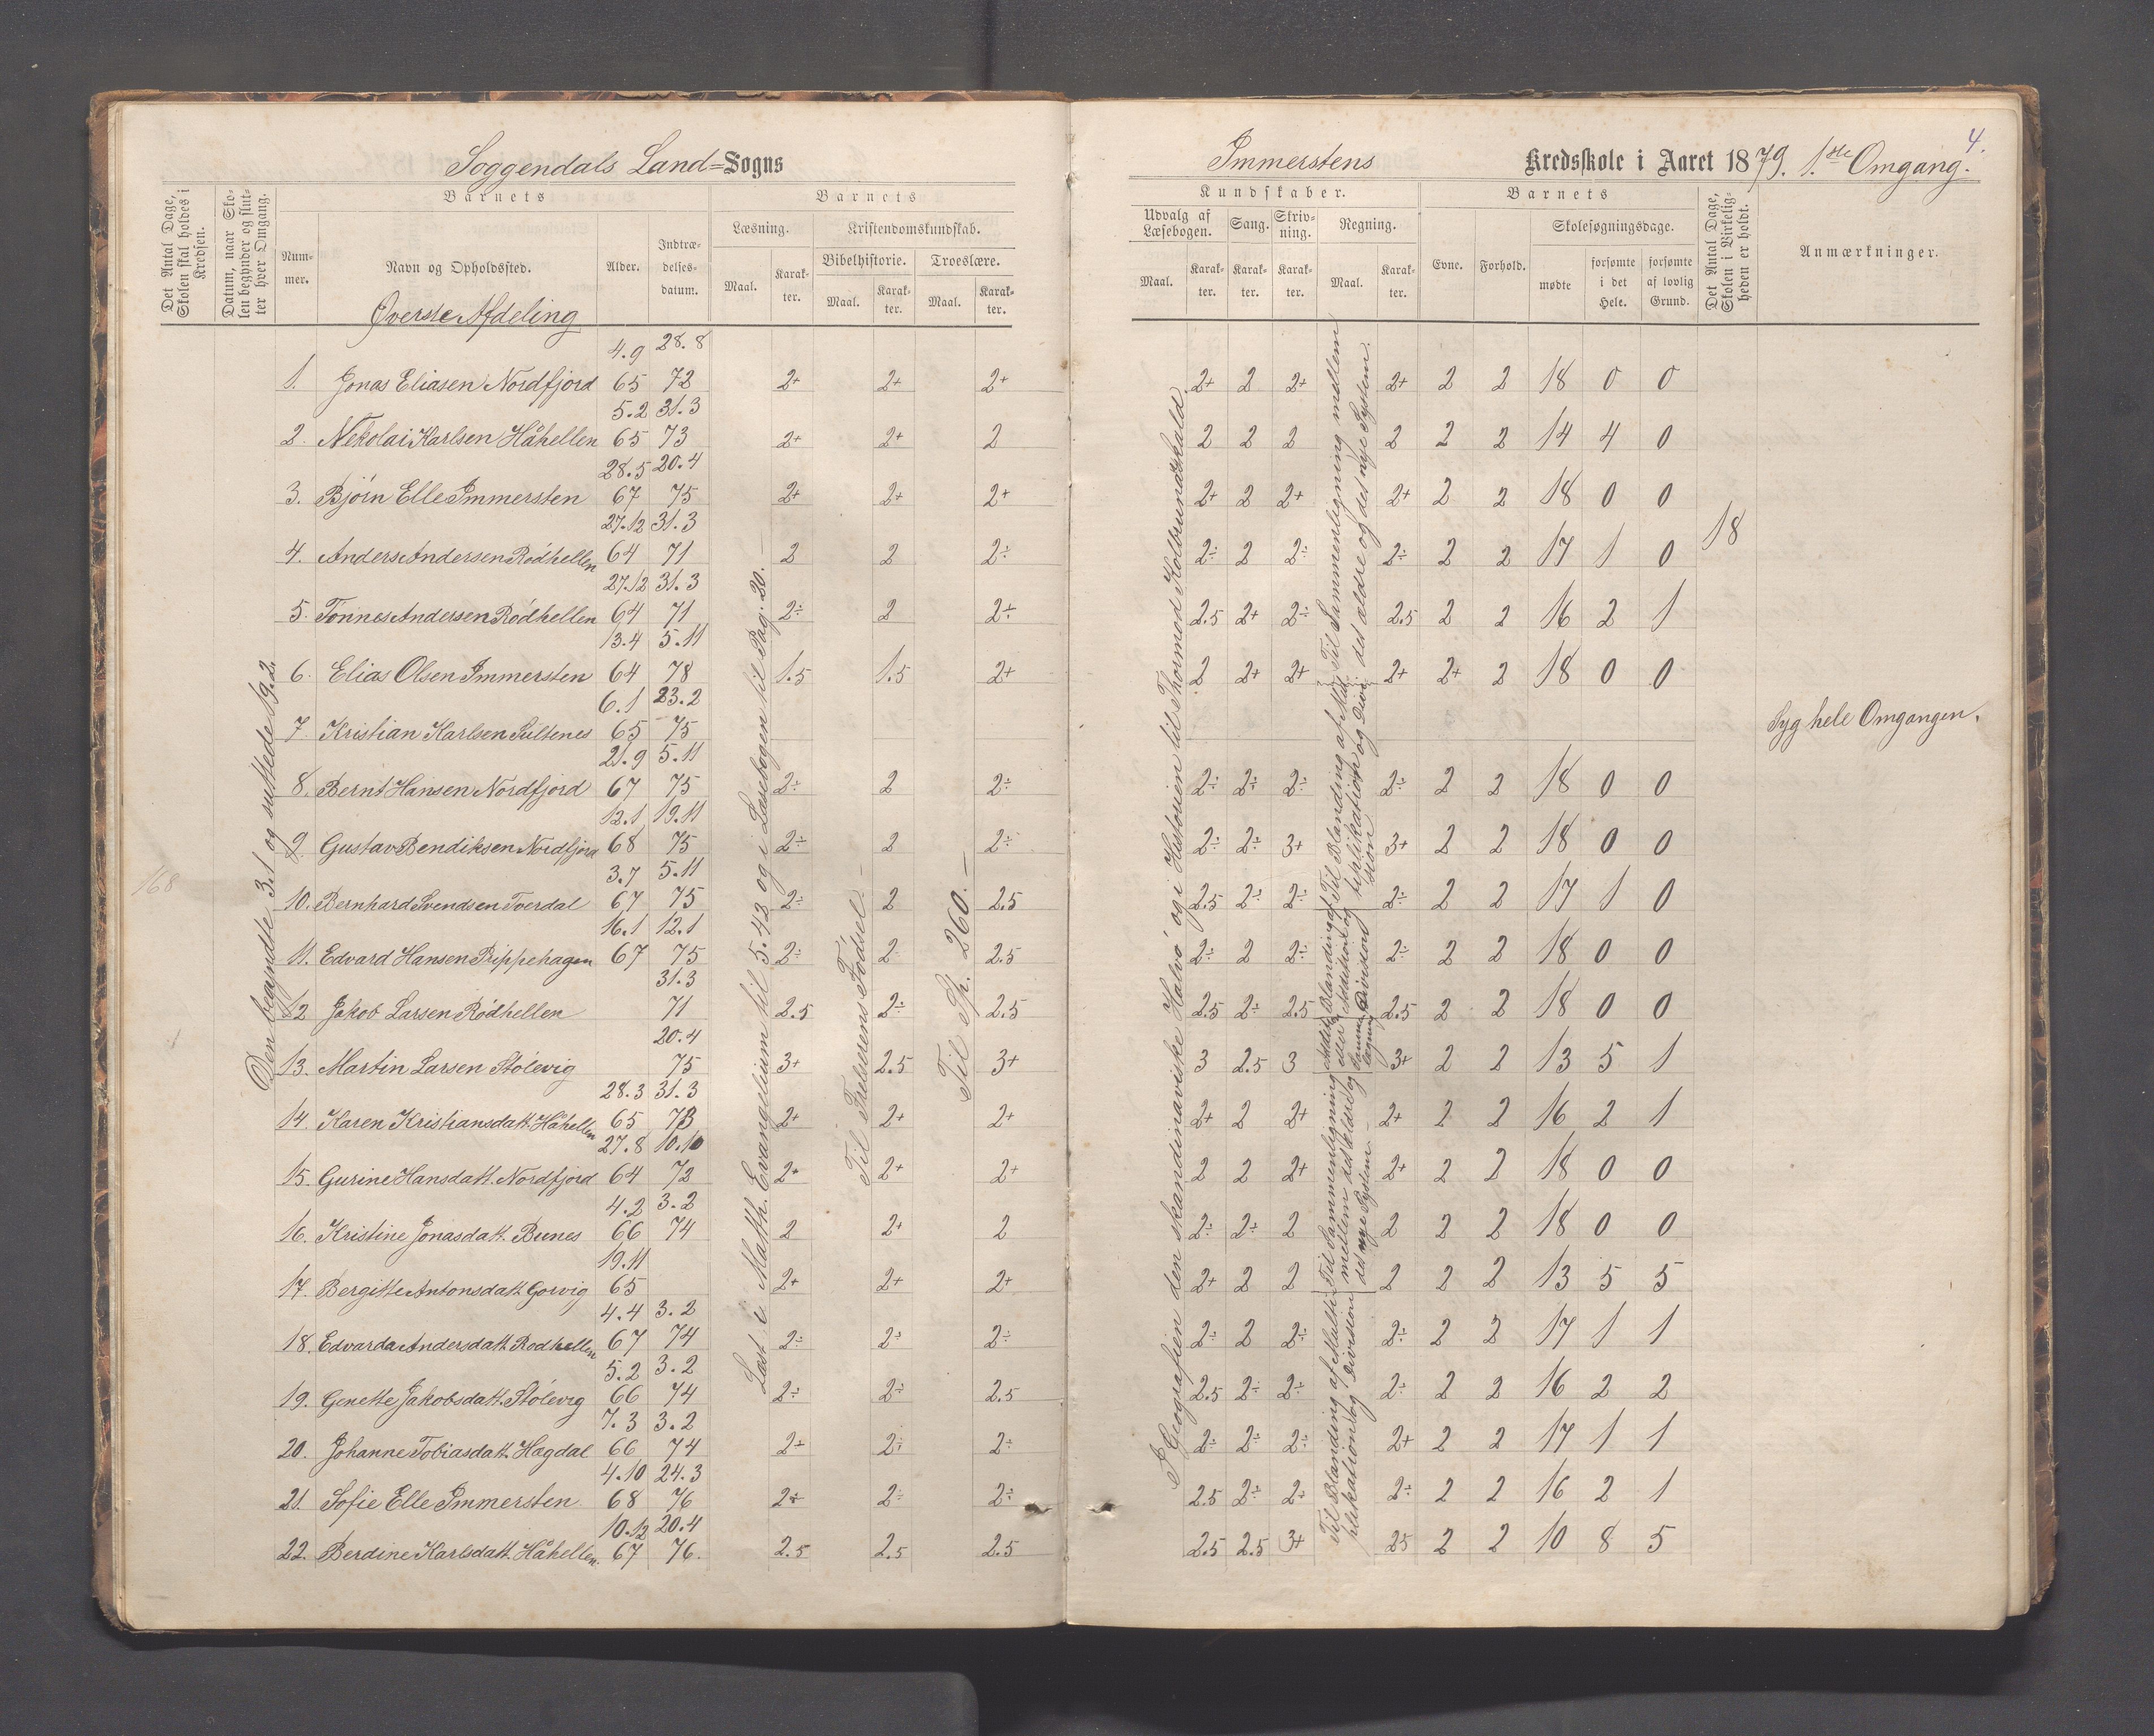 Soggendals Land=Sogns
Immerstens Kredsskole i Aaret 1879. 1.ste Omgang.
4.
Det Antal Dage, Skolen skal holdes i Kredsen.
Datum, naar Skolen begynder og slutter hver Omgang.
Barnets
Nummer.
Navn og Opholdssted.
Alder.
Indtrædelsesdatum.
Barnets
Læsning.
Kristendomskundskab.
Bibelhistorie.
Troeslære.
Maal.
Karakter.
Maal.
Karakter.
Maal.
Karakter.
Kundskaber.
Udvalg af Læsebogen.
Sang.
Skrivning.
Regning.
Maal.
Karakter.
Karakter.
Karakter.
Maal.
Karakter.
Barnets
Evne.
Forhold.
Skolesøgningsdage.
mødte
forsømte i det Hele.
forsømte af lovlig Grund.
Det Antal Dage, Skolen i Virkeligheden er holdt.
Anmærkninger.
Øverste Afdeling
Den begyndte 3.1 og sluttede 19.2.
168
Læst i Matth. Evangelium til 5.42 og i Læsebogen til Pag. 20. —
Til Frelserens Fødsel. —
Til Sp. 260. —
I Geografien den skandinaviske Halvø og i Historien til Thormod Kolbrunarskald.
18
4.9 28.8
1. Jonas Eliasen Nordfjord 65 72 2+ 2+ 2+ 2+ 2 2+ 2+ 2 2 18 0 0
5.2 31.3
2. Nekolai Karlsen Håhellen 65 73 2+ 2+ 2 2 2 2 2 2 2 14 4 0
28.5 20.4
3. Bjørn Elle Immersten 67 75 2+ 2+ 2+ 2+ 2 2+ 2+ 2 2 18 0 0
27.12 31.3
4. Anders Andersen Rødhellen 64 71 2 2 2÷ 2÷ 2 2÷ 2÷ 2 2 17 1 0
27.12 31.3
5. Tønnes Andersen Rødhellen 64 71 2÷ 2 2÷ 2.5 2+ 2÷ 2.5 2 2 16 2 1
13.4 5.11
6. Elias Olsen Immersten 64 78 1.5 1.5 2+ 2 2+ 2+ 2+ 2+ 2 18 0 0
6.1 23.2
7 Kristian Karlsen Sultenes 65 75 Syg hele Omgangen.
21.9 5.11
8. Bernt Hansen Nordfjord 67 75 2÷ 2 2÷ 2÷ 2÷ 2÷ 2÷ 2 2 18 0 0
12.1 19.11
9 Gustav Bendiksen Nordfjord 68 75 2÷ 2 2÷ 2÷ 2÷ 3+ 3+ 2 2 18 0 0
3.7 5.11
10. Bernhard Svendsen Tverdal 67 75 2÷ 2 2.5 2.5 2÷ 2÷ 2÷ 2 2 17 1 0
16.1 12.1
11. Edvard Hansen Rippehagen 67 75 2÷ 2 2.5 2÷ 2 2÷ 2÷ 2 2 18 0 0
31.3
12 Jakob Larsen Rødhellen 71 2.5 2÷ 2.5 2.5 2÷ 2.5 2.5 2 2 18 0 0
20.4
13. Martin Larsen Stølevig 75 3+ 2.5 3+ 3 2.5 3 3+ 2 2 13 5 1
28.3 31.3
14. Karen Kristiansdatt. Håhellen 65 73 2+ 2+ 2+ 2+ 2 2+ 2+ 2 2 16 2 1
27.8 10.10
15. Gurine Hansdatt. Nordfjord 64 72 2+ 2+ 2+ 2 2 2+ 2+ 2 2 18 0 0
4.2 3.2
16. Kristine Jonasdatt. Bunes 66 74 2 2+ 2 2÷ 2÷ 2 2 2 2 18 0 0
19.11
17. Bergitte Antonsdatt. Gorvig 65 2+ 2+ 2+ 2+ 2 2 2 2 2 13 5 5
4.4 3.2
18. Edvarda Andersdatt. Rødhellen 67 74 2÷ 2÷ 2÷ 2÷ 2 2÷ 2÷ 2 2 17 1 1
5.2 3.2
19. Genette Jakobsdatt. Stølevig 66 74 2÷ 2÷ 2.5 2.5 2÷ 2÷ 2÷ 2 2 16 2 2
7.3 3.2
20. Johanne Tobiasdatt. Hagdal 66 74 2+ 2÷ 2÷ 2÷ 2÷ 2÷ 2+ 2 2 17 1 1
4.10 24.3
21. Sofie Elle Immersten 68 76 2÷ 2÷ 2÷ 2.5 2÷ 2÷ 2÷ 2 2 16 2 1
10.12 20.4
22. Berdine Karlsdatt. Håhellen. 67 76. 2.5 2.5 2.5 2.5 2.5 3+ 25 2 2 10 8 5